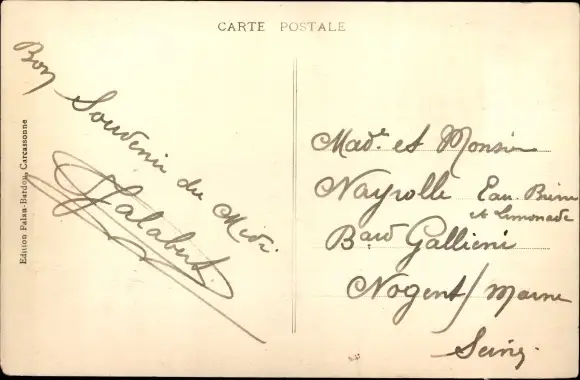 CARTE POSTALE
Bon Souvenir du Midi
Falabert.
Edition Palau-Bardou, Carcassonne
Made et Monsieur
Nayrolle Eau Bière
et Limonade
Bard Gallieni
Nogent/Marne
Seine